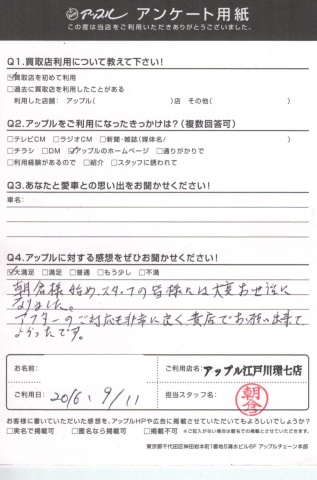 アップル アンケート用紙
この度は当店をご利用いただきありがとうございました。
Q1.買取店利用について教えて下さい!
☑買取店を初めて利用
□過去に買取店を利用したことがある
利用した店舗: アップル( )店 その他( )
Q2.アップルをご利用になったきっかけは?(複数回答可)
□テレビCM □ラジオCM □新聞・雑誌(媒体名/ )
□チラシ □DM ☑アップルのホームページ □通りがかりで
□利用経験があるので □紹介 □スタッフに誘われて
Q3.あなたと愛車との思い出をお聞かせください!
車名:
Q4.アップルに対する感想をぜひお聞かせください!
☑大満足 □満足 □普通 □もう少し □不満
朝倉様始め、スタッフの皆様には大変お世話に
なりました。
アフターのご対応も非常に良く、貴店でお願い出来て
よかったです。
お名前:
ご利用店名:アップル江戸川環七店
ご利用日: 2016. 9/11
担当スタッフ名: 朝倉
お客様に書いていただいた感想を、アップルHPや広告に掲載させていただいてもよろしいでしょうか?
□実名で掲載可 □匿名なら掲載可 □掲載不可 ※ご記入がない場合は匿名での掲載とさせていただきます。
東京都千代田区神田岩本町1番地5清水ビル6F アップルチェーン本部